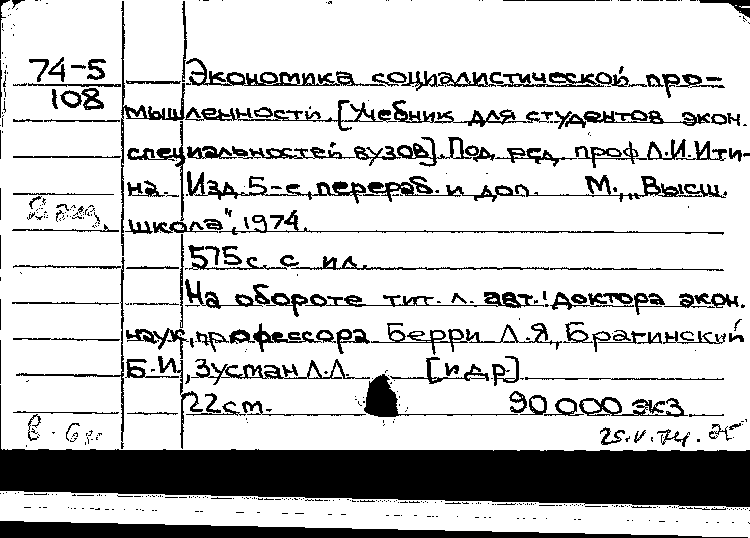 74-5
108
Экономика социалистической про-
мышленности. [Учебник для студентов экон.
специальностей вузов]. Под ред. проф. Л.И. Ити-
на. Изд. 5-е, перераб. и доп. М., „Высш.
2 экз.
школа", 1974.
575 с. с ил.
На обороте тит. л. авт.: доктора экон.
наук, профессора Берри Л.Я., Брагинский
Б.И., Зусман Л.Л. [и др.]
22 см. 90 000 экз.
25.V.74.